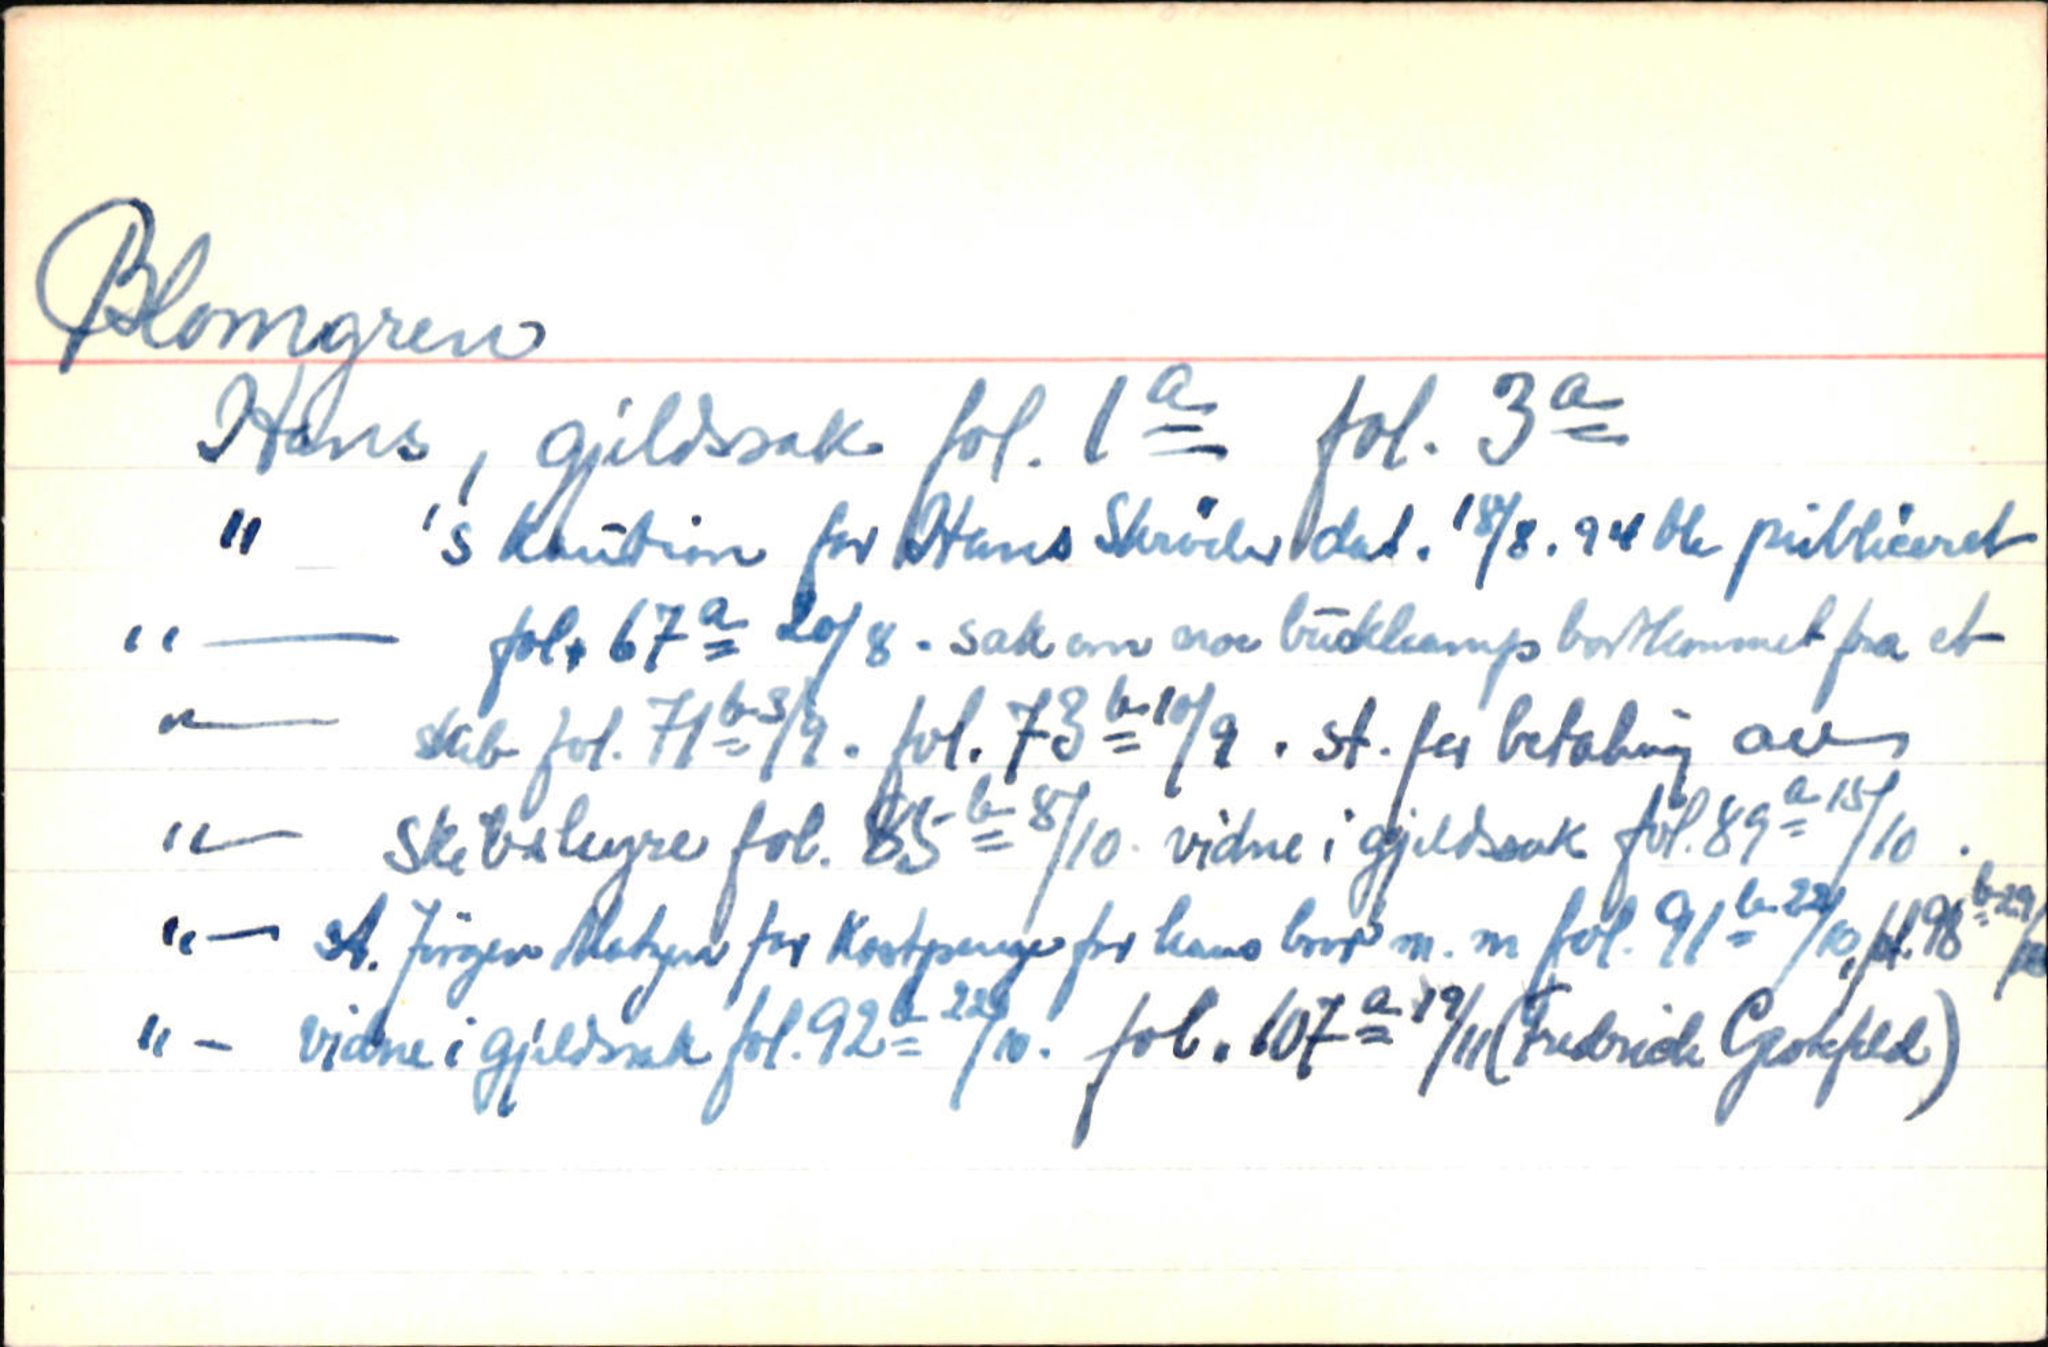 Blomgren
Hans, gjeldssak fol. 1a fol. 3a
" 's kaution for Hans Skröder dat. 18/8. 94 ble publiceret
" — fol. 67a 20/8. sak om bortkommet fra et
" — skib fol. 71b 3/9. fol. 73b 10/9. st. for betaling av
" — Skibshyre fol. 85b 8/10. vidne i gjeldssak fol. 89a 15/10.
" — st. Jörgen for Kostpenge for hans bror m. m fol. 91b 22/10, fol. 98b 29/10
" – vidne i gjeldssak fol. 92b 22/10. fol. 107a 19/11 (Fredrich Grotfeld)